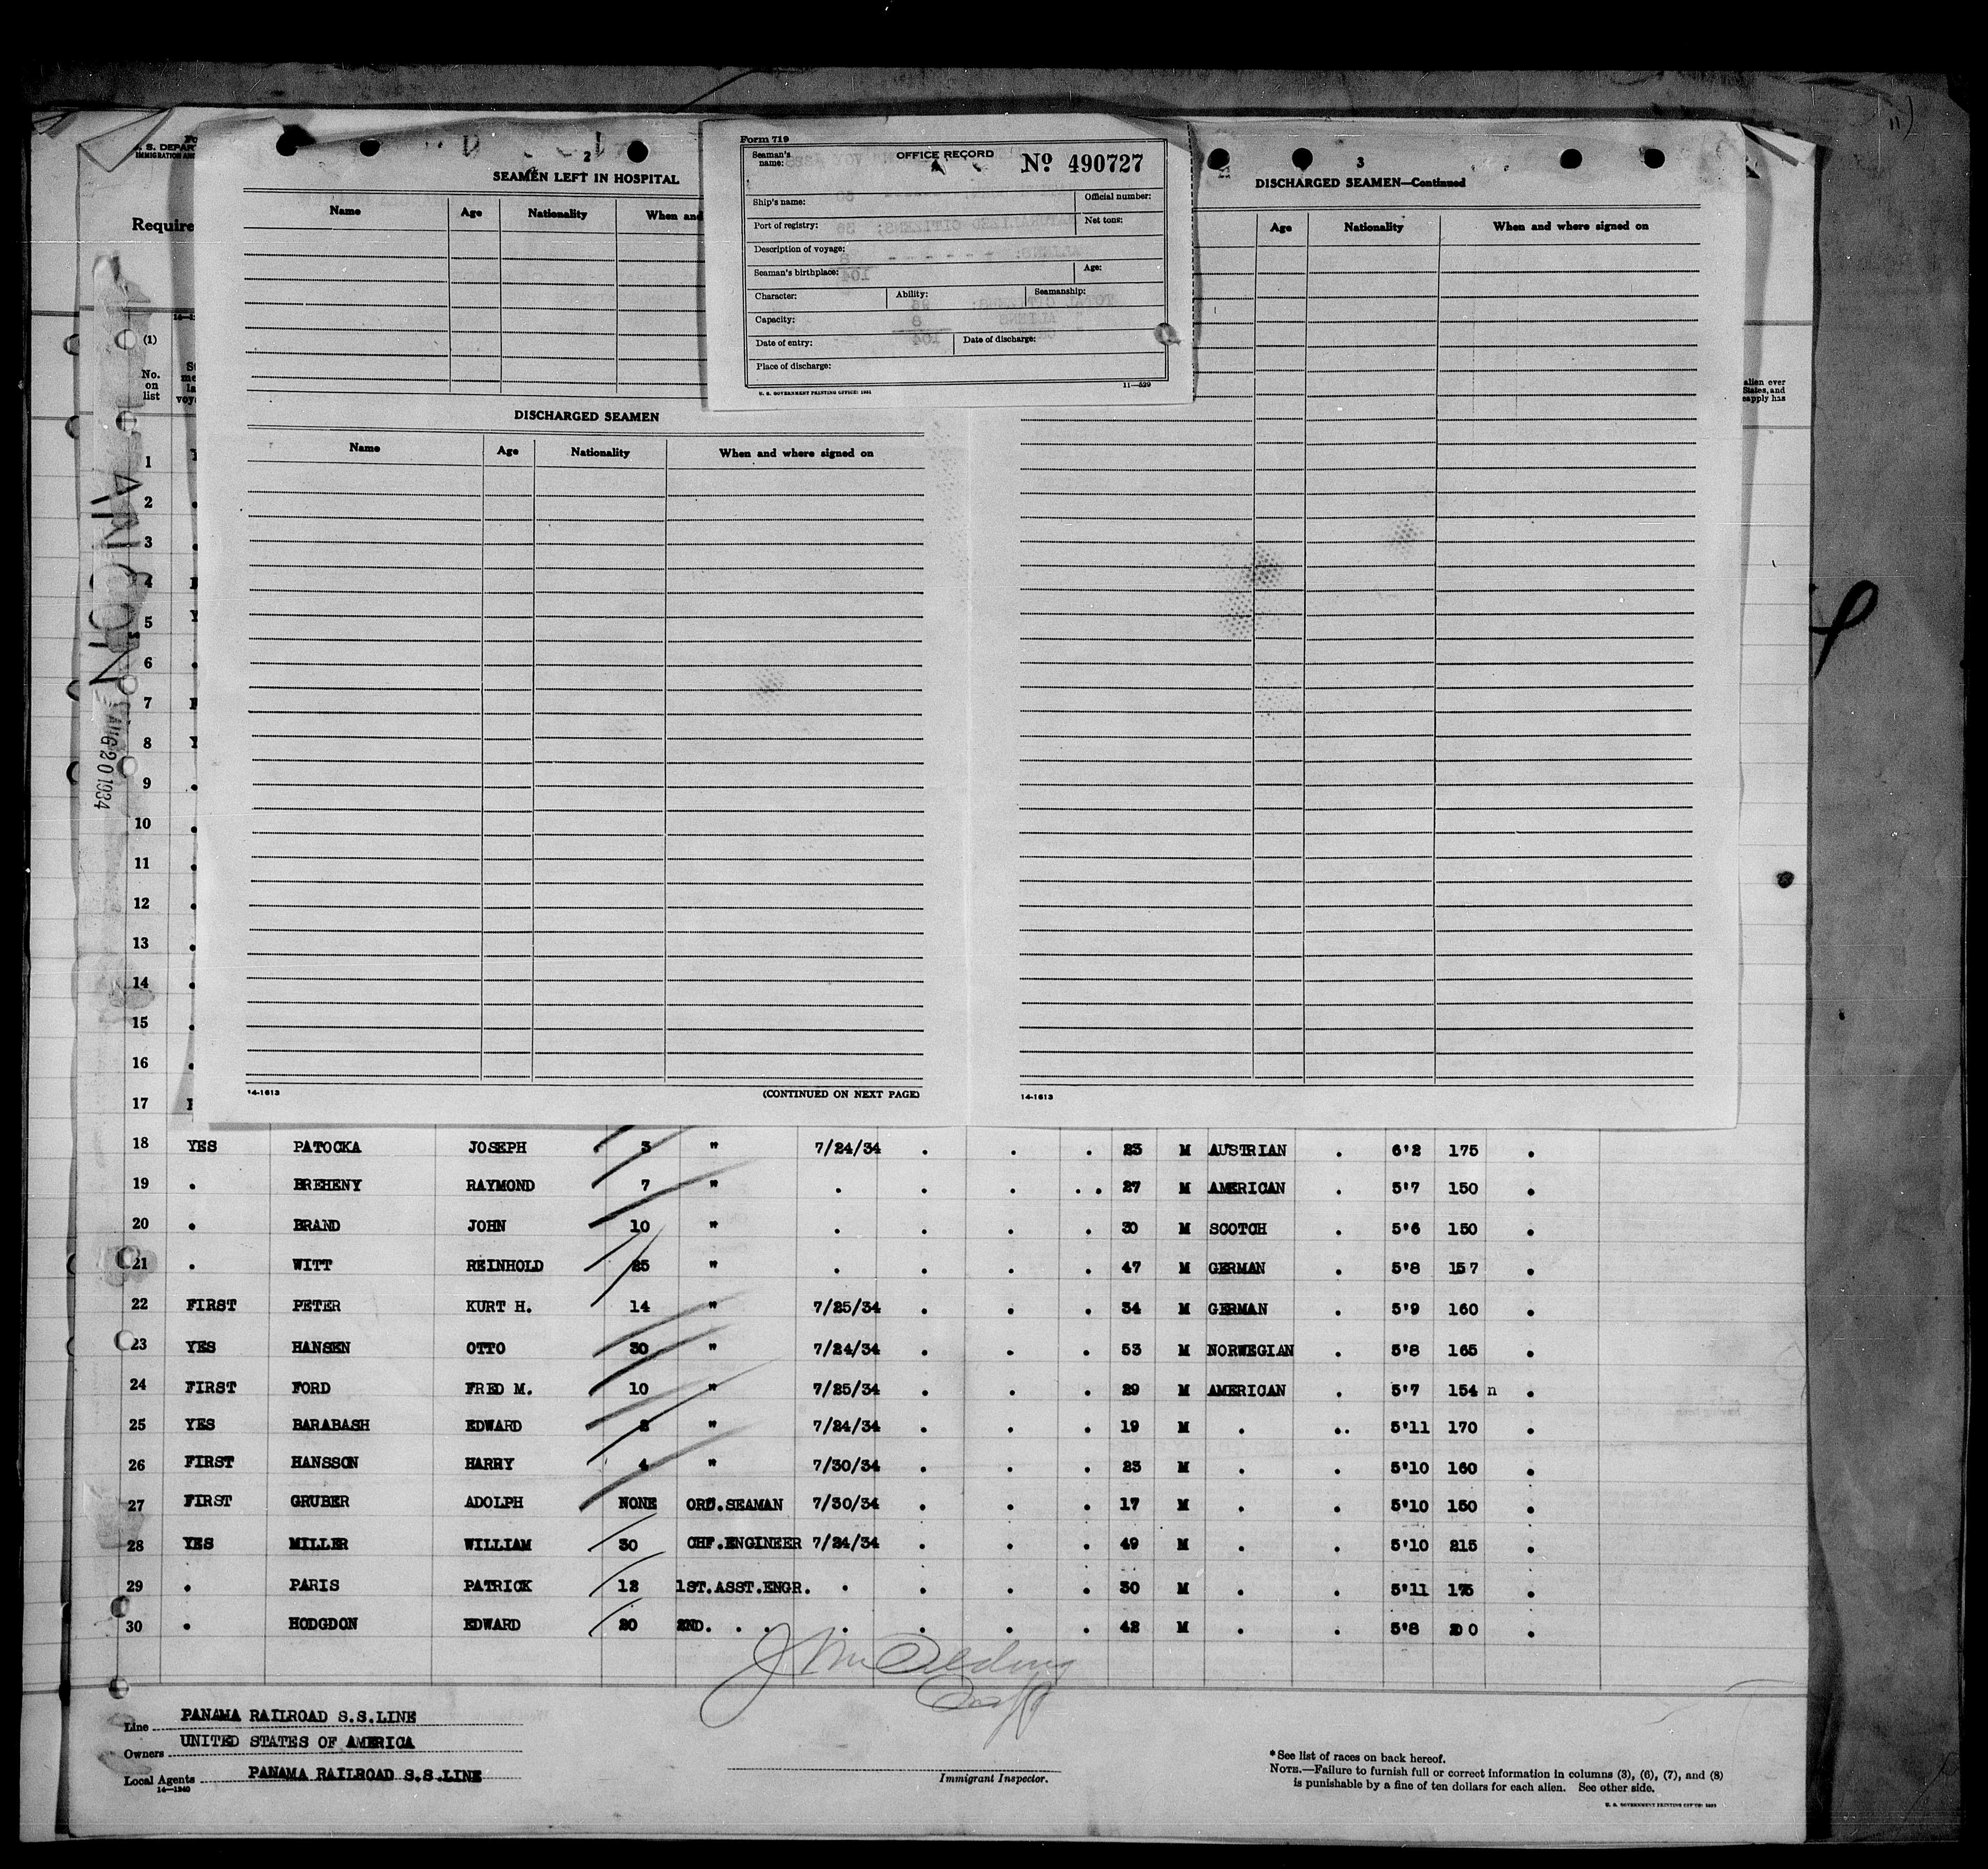 Form 719
Seaman's name:
OFFICE RECORD
No 490727
Ship's name:
Official number:
Port of registry:
Net tons:
Description of voyage:
Seaman's birthplace:
Age:
Character:
Ability:
Seamanship:
Capacity:
Date of entry:
Date of discharge:
Place of discharge:
U. S. GOVERNMENT PRINTING OFFICE: 1931
11—529
2
SEAMEN LEFT IN HOSPITAL
Name Age Nationality When and
DISCHARGED SEAMEN
Name Age Nationality When and where signed on
14-1613 (CONTINUED ON NEXT PAGE)
3
DISCHARGED SEAMEN—Continued
Age Nationality When and where signed on
14-1613
S. DEPAR
IMMIGRATION AN
Require
(1)
No. on list
alien over
States, and
reapply has
AUG 20 1934
1
2
3
4
5
6
7
8
9
10
11
12
13
14
15
16
17
18 YES PATOCKA JOSEPH 3 " 7/24/34 . . . 23 M AUSTRIAN . 6'2 175 .
19 . BREHENY RAYMOND 7 " . . . . . 27 M AMERICAN . 5'7 150 .
20 . BRAND JOHN 10 " . . . . 30 M SCOTCH . 5'6 150 .
21 . WITT REINHOLD 25 " . . . . 47 M GERMAN . 5'8 157 .
22 FIRST PETER KURT H. 14 " 7/25/34 . . . 34 M GERMAN . 5'9 160 .
23 YES HANSEN OTTO 30 " 7/24/34 . . . 53 M NORWEGIAN . 5'8 165 .
24 FIRST FORD FRED M. 10 " 7/25/34 . . . 29 M AMERICAN . 5'7 154 n .
25 YES BARABASH EDWARD 2 " 7/24/34 . . . 19 M . .. 5'11 170 .
26 FIRST HANSSON HARRY 4 " 7/30/34 . . . 23 M . . 5'10 160 .
27 FIRST GRUBER ADOLPH NONE ORD.SEAMAN 7/30/34 . . . 17 M . . 5'10 150 .
28 YES MILLER WILLIAM 30 CHF.ENGINEER 7/24/34 . . . 49 M . . 5'10 215 .
29 . PARIS PATRICK 12 1ST.ASST.ENGR. . . . . 30 M . . 5'11 175 .
30 . HODGDON EDWARD 20 2ND. . . . . . . 42 M . . 5'8 200 .
Line PANAMA RAILROAD S.S.LINE
Owners UNITED STATES OF AMERICA
Local Agents PANAMA RAILROAD S.S.LINE
14—1240
Immigrant Inspector.
*See list of races on back hereof.
NOTE.—Failure to furnish full or correct information in columns (3), (6), (7), and (8)
is punishable by a fine of ten dollars for each alien. See other side.